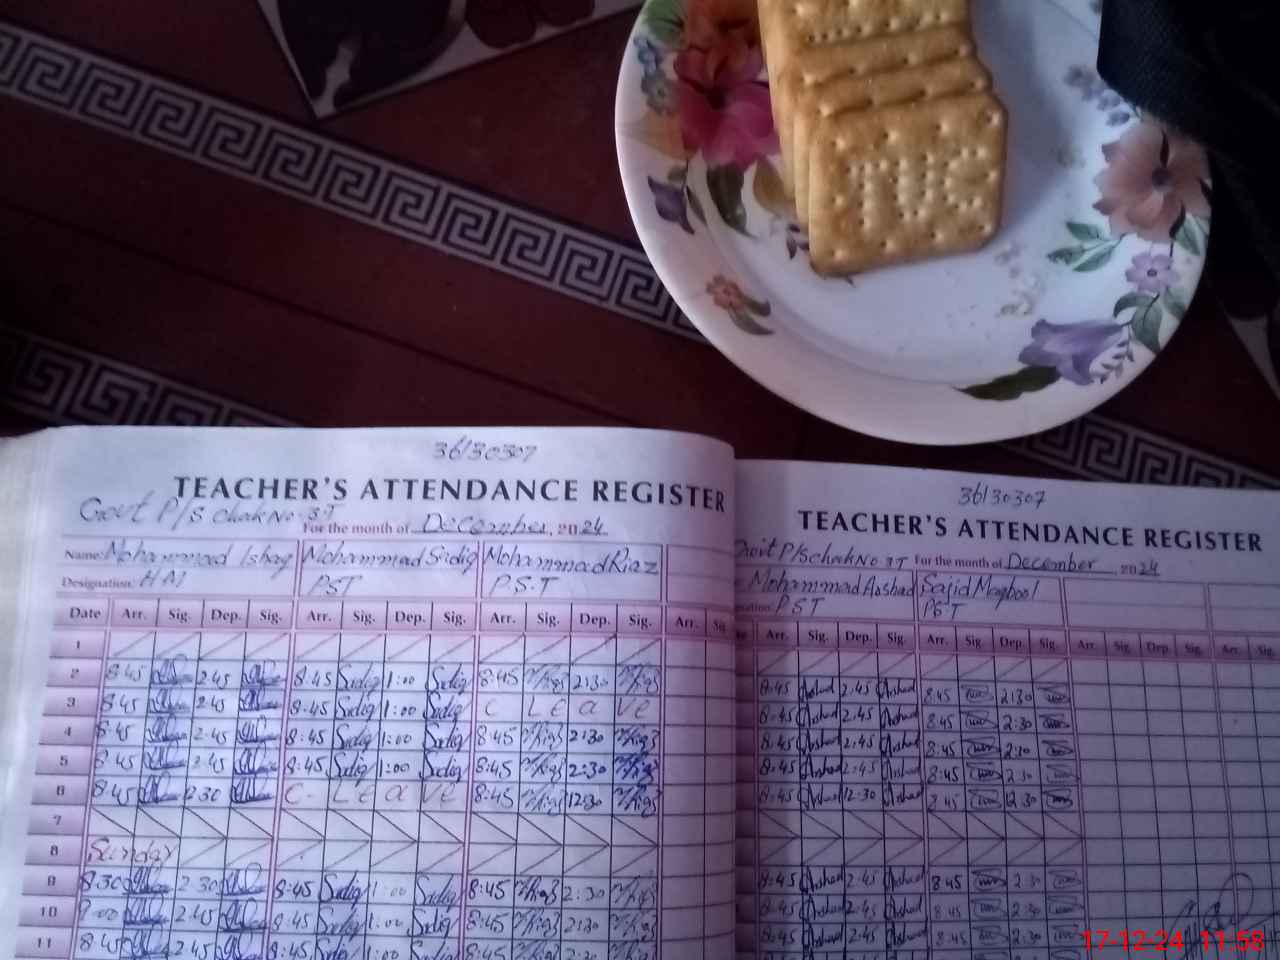 TUC
36130307
TEACHER'S ATTENDANCE REGISTER
Govt P/S Chak No. 3T For the month of December, 2024
Name: Mohammad Ishaq Mohammad Sidiq Mohammad Riaz
Designation: HM PST P.S.T
Date Arr. Sig. Dep. Sig. Arr. Sig. Dep. Sig. Arr. Sig. Dep. Sig. Arr.
1
2 8:45 2:45 8:45 Sidiq 1:00 Sidiq 8:45 2:30
3 8:45 2:45 8:45 Sidiq 1:00 Sidiq C Leave
4 8:45 2:45 8:45 Sidiq 1:00 Sidiq 8:45 2:30
5 8:45 2:45 8:45 Sidiq 1:00 Sidiq 8:45 2:30
6 8:45 12:30 C. Leave 8:45 12:30
7
8 Sunday
9 8:30 2:30 8:45 Sidiq 1:00 Sidiq 8:45 2:30
10 9:00 2:45 8:45 Sidiq 1:00 Sidiq 8:45 2:30
11 8:45 2:45 8:45 Sidiq 1:00 Sidiq 8:45 2:30
36130307
TEACHER'S ATTENDANCE REGISTER
Govt P/S Chak No 3T For the month of December, 2024
Mohammad Arshad Sajid Maqbool
PST PST
Arr. Sig. Dep. Sig. Arr. Sig. Dep. Sig. Arr. Sig. Dep. Sig. Arr. Sig.
8:45 Arshad 2:45 Arshad 8:45 2:30
8:45 Arshad 2:45 Arshad 8:45 2:30
8:45 Arshad 2:45 Arshad 8:45 2:30
8:45 Arshad 2:45 Arshad 8:45 2:30
8:45 Arshad 12:30 Arshad 8:45 12:30
8:45 Arshad 2:45 Arshad 8:45 2:30
8:45 Arshad 2:45 Arshad 8:45 2:30
8:45 Arshad 2:45 Arshad 8:45 2:30
17-12-24 11:58